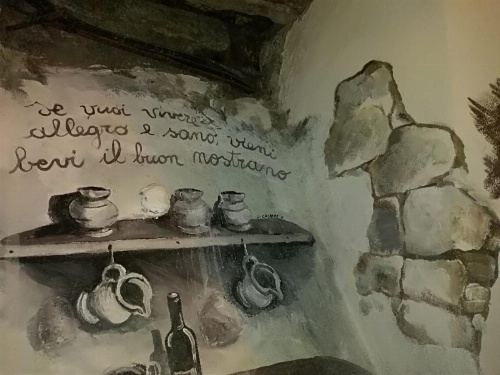 se vuoi vivere
allegro e sano, vieni
bevi il buon nostrano